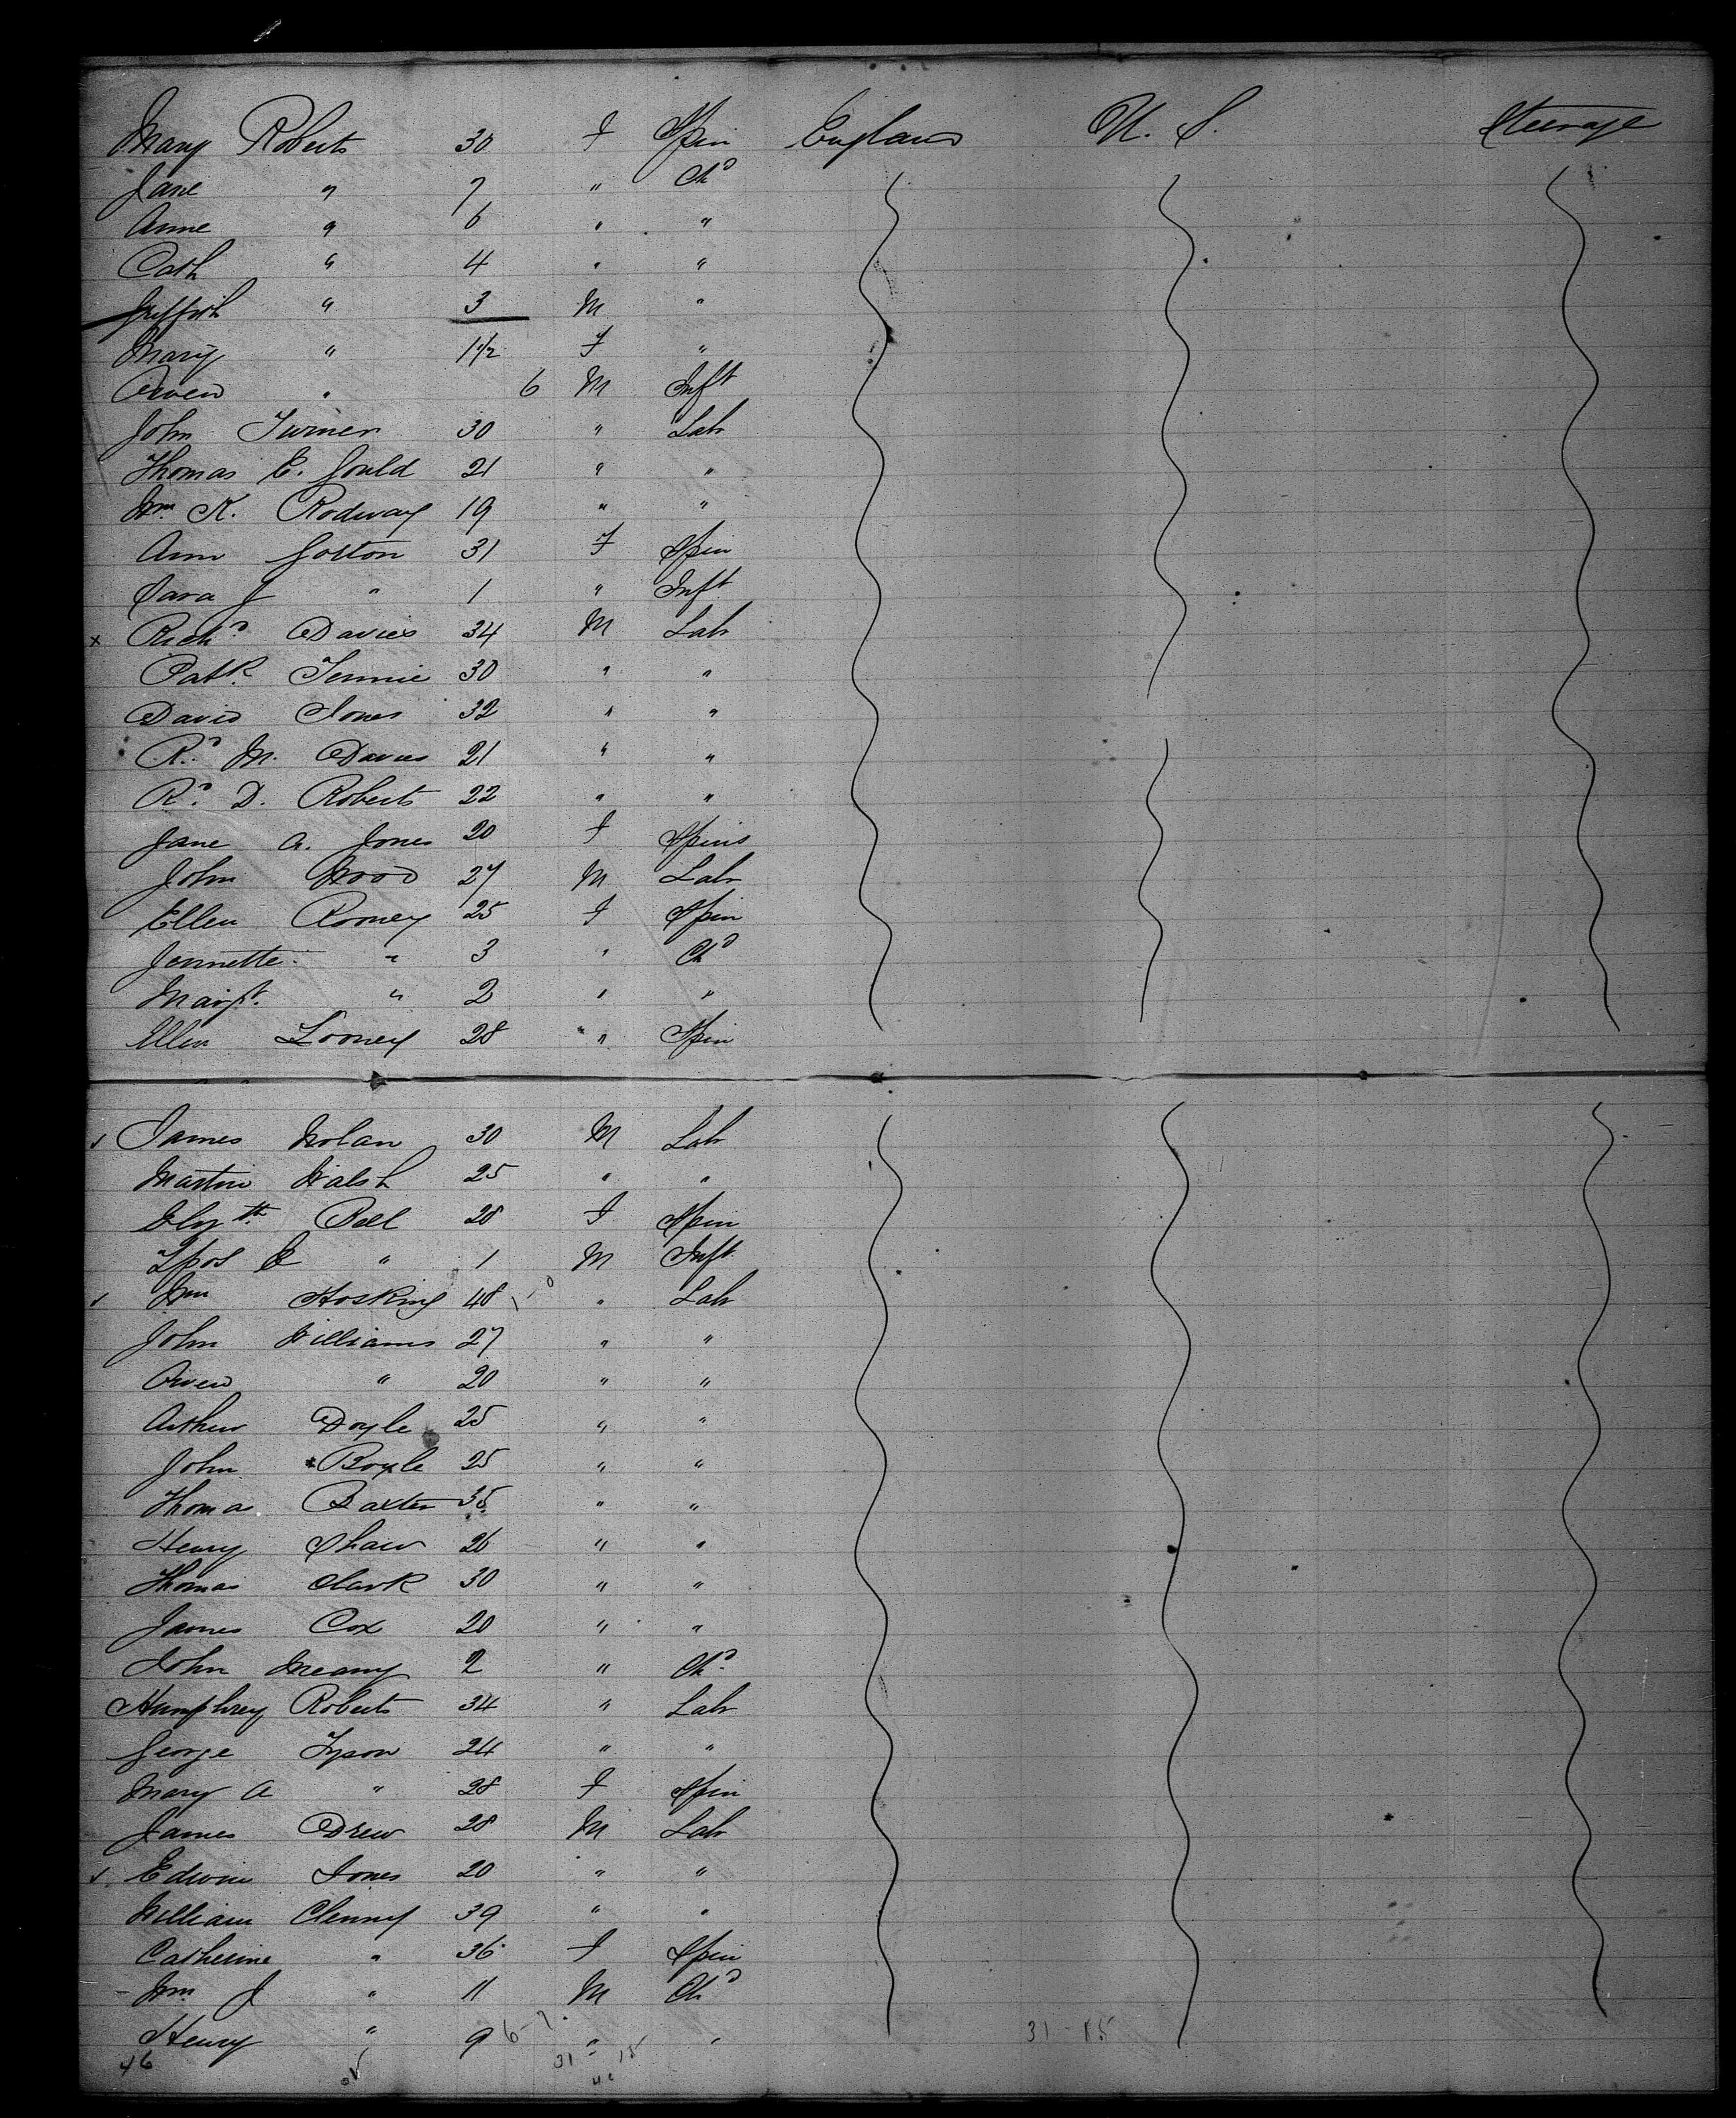 Mary Roberts 30 F Spin England U. S. Steerage
Jane " 7 " Chd
Anne " 6 " "
Cath " 4 " "
Griffith " 3 M "
Mary " 1 1/2 F "
Owen " 6 M Inft
John Turner 30 " Lab
Thomas E. Gould 21 " "
Wm K. Rodway 19 " "
Ann Gorton 31 F Spin
Sara J " 1 " Inft
x Richd Davies 34 M Lab
Patk 30 " "
David Jones 32 " "
Rd M. Davies 21 " "
Rd D. Roberts 22 " "
Jane A. Jones 20 F Spins
John Wood 27 M Lab
Ellen Rooney 25 F Spin
Jennette " 3 " Chd
Margt. " 2 " "
Ellen Looney 28 " Spin
James Nolan 30 M Lab
Martin Walsh 25 " "
Elizth Bell 28 F Spin
E " 1 M Inft
Wm Hosking 48 " Lab
John Williams 27 " "
Owen " 20 " "
Arthur Doyle 25 " "
John Boyle 25 " "
Thomas Baxter 35 " "
Henry Shaw 26 " "
Thomas Clark 30 " "
James Cox 20 " "
John Meany 2 " Chd
Humphrey Roberts 34 " Lab
George Tyson 24 " "
Mary A " 28 F Spin
James Drew 28 M Lab
Edwin Jones 20 " "
William Clenny 39 " "
Catherine " 36 F Spin
Wm J " 11 M Chd
Henry " 9 " "
46 31 - 15 31 - 15